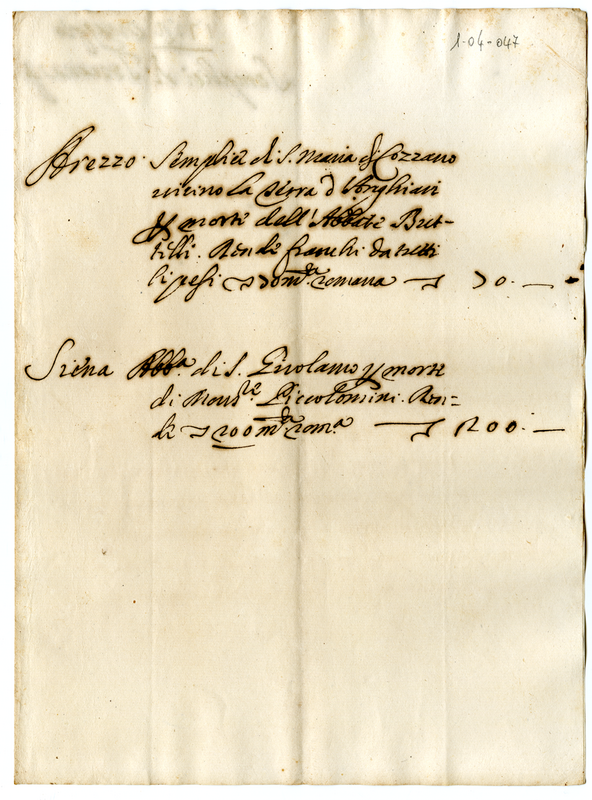 1-04-047
Arezzo Semplici di S. Maria di Cozzano
vicino la Terra d'Anghiari
per morte dell'Abbate But-
telli. Rende franchi da tutti
li pesi 70 m.ta romana 70.
Siena Abb.a di S. Girolamo per morte
di Mons.re Piccolomini. Ren-
de 200 m.ta rom.a 200.